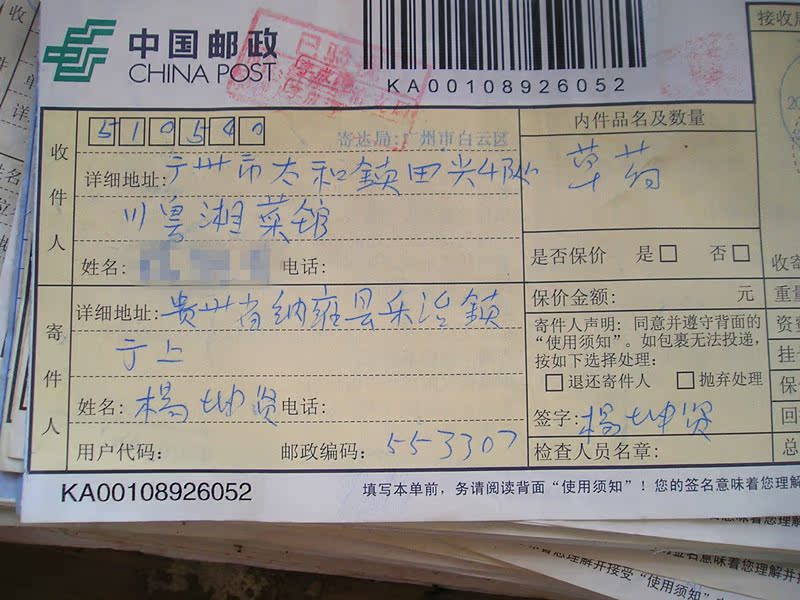 中国邮政
CHINA POST
KA00108926052
收件人
510540
寄达局:广州市白云区
详细地址:广州市太和鎮田尖4队
川粤湘菜馆
姓名: 电话:
内件品名及数量
草药
是否保价 是 否
寄件人
详细地址:贵州省纳雍县乐治鎮
于上
姓名:楊坤贤 电话:
用户代码: 邮政编码:553307
保价金额: 元
寄件人声明: 同意并遵守背面的
“使用须知”。如包裹无法投递,
按如下选择处理:
退还寄件人 抛弃处理
签字:楊坤贤
检查人员名章:
接收
收寄
重
资
挂
保
回
总
KA00108926052
填写本单前,务请阅读背面“使用须知”!您的签名意味着您理解